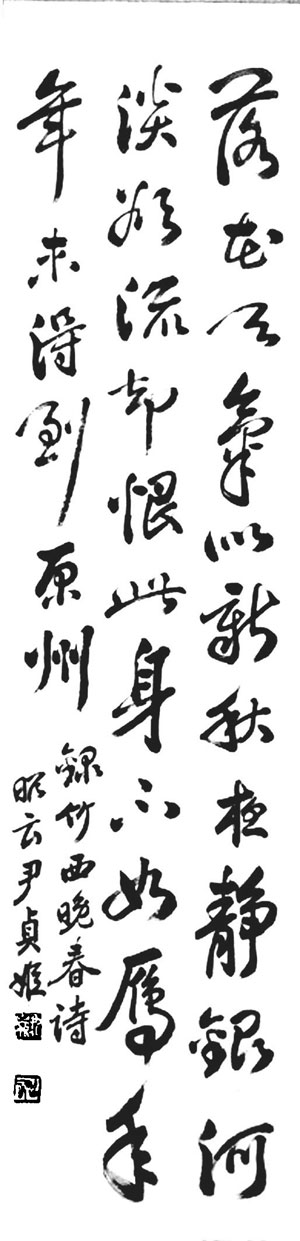 落花天氣似新秋夜靜銀河
淡欲流却恨此身不如鴈年
年未得到原州
錄竹西晚春詩
云尹貞姬